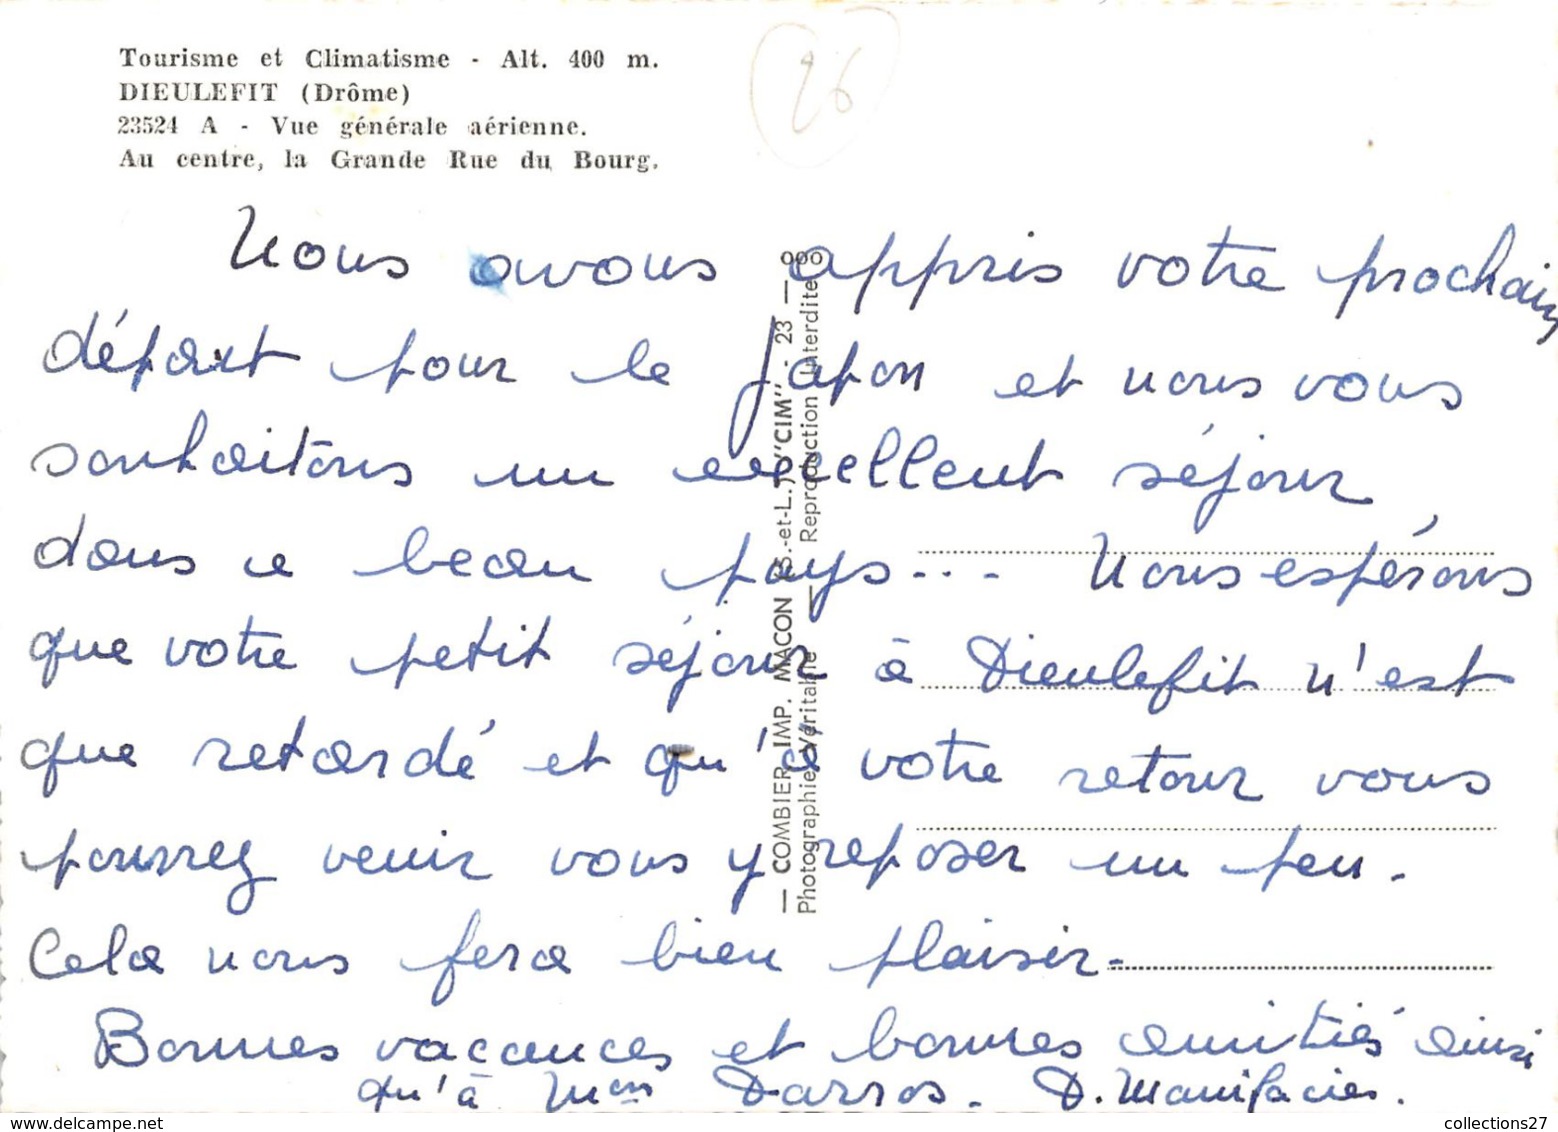 Tourisme et Climatisme - Alt. 400 m.
DIEULEFIT (Drôme)
23524 A - Vue générale aérienne.
Au centre, la Grande Rue du Bourg.
26
Nous avons appris votre prochain
départ pour le Japon et nous vous
souhaitons un excellent séjour
dans ce beau pays... Nous espérons
que votre petit séjour à Dieulefit n'est
que retardé et qu'à votre retour vous
pourrez venir vous y reposer un peu.
Cela nous fera bien plaisir.
Bonnes vacances et bonnes amitiés ainsi
qu'à Darros. D.
— COMBIER IMP. MACON (S.-et-L.) "CIM" - 23 —
Photographie Véritable — Reproduction Interdite
collections27.ecwid.com
collections27